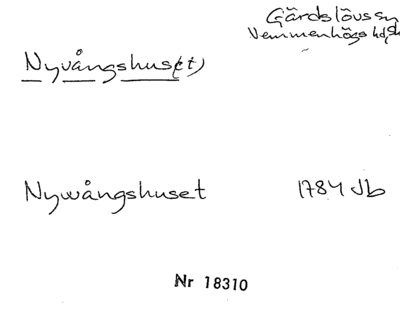 Gärdslövs sn
Vemmenhögs hd, Sk
Nyvångshus(et)
Nywångshuset 1784 Jb
Nr 18310